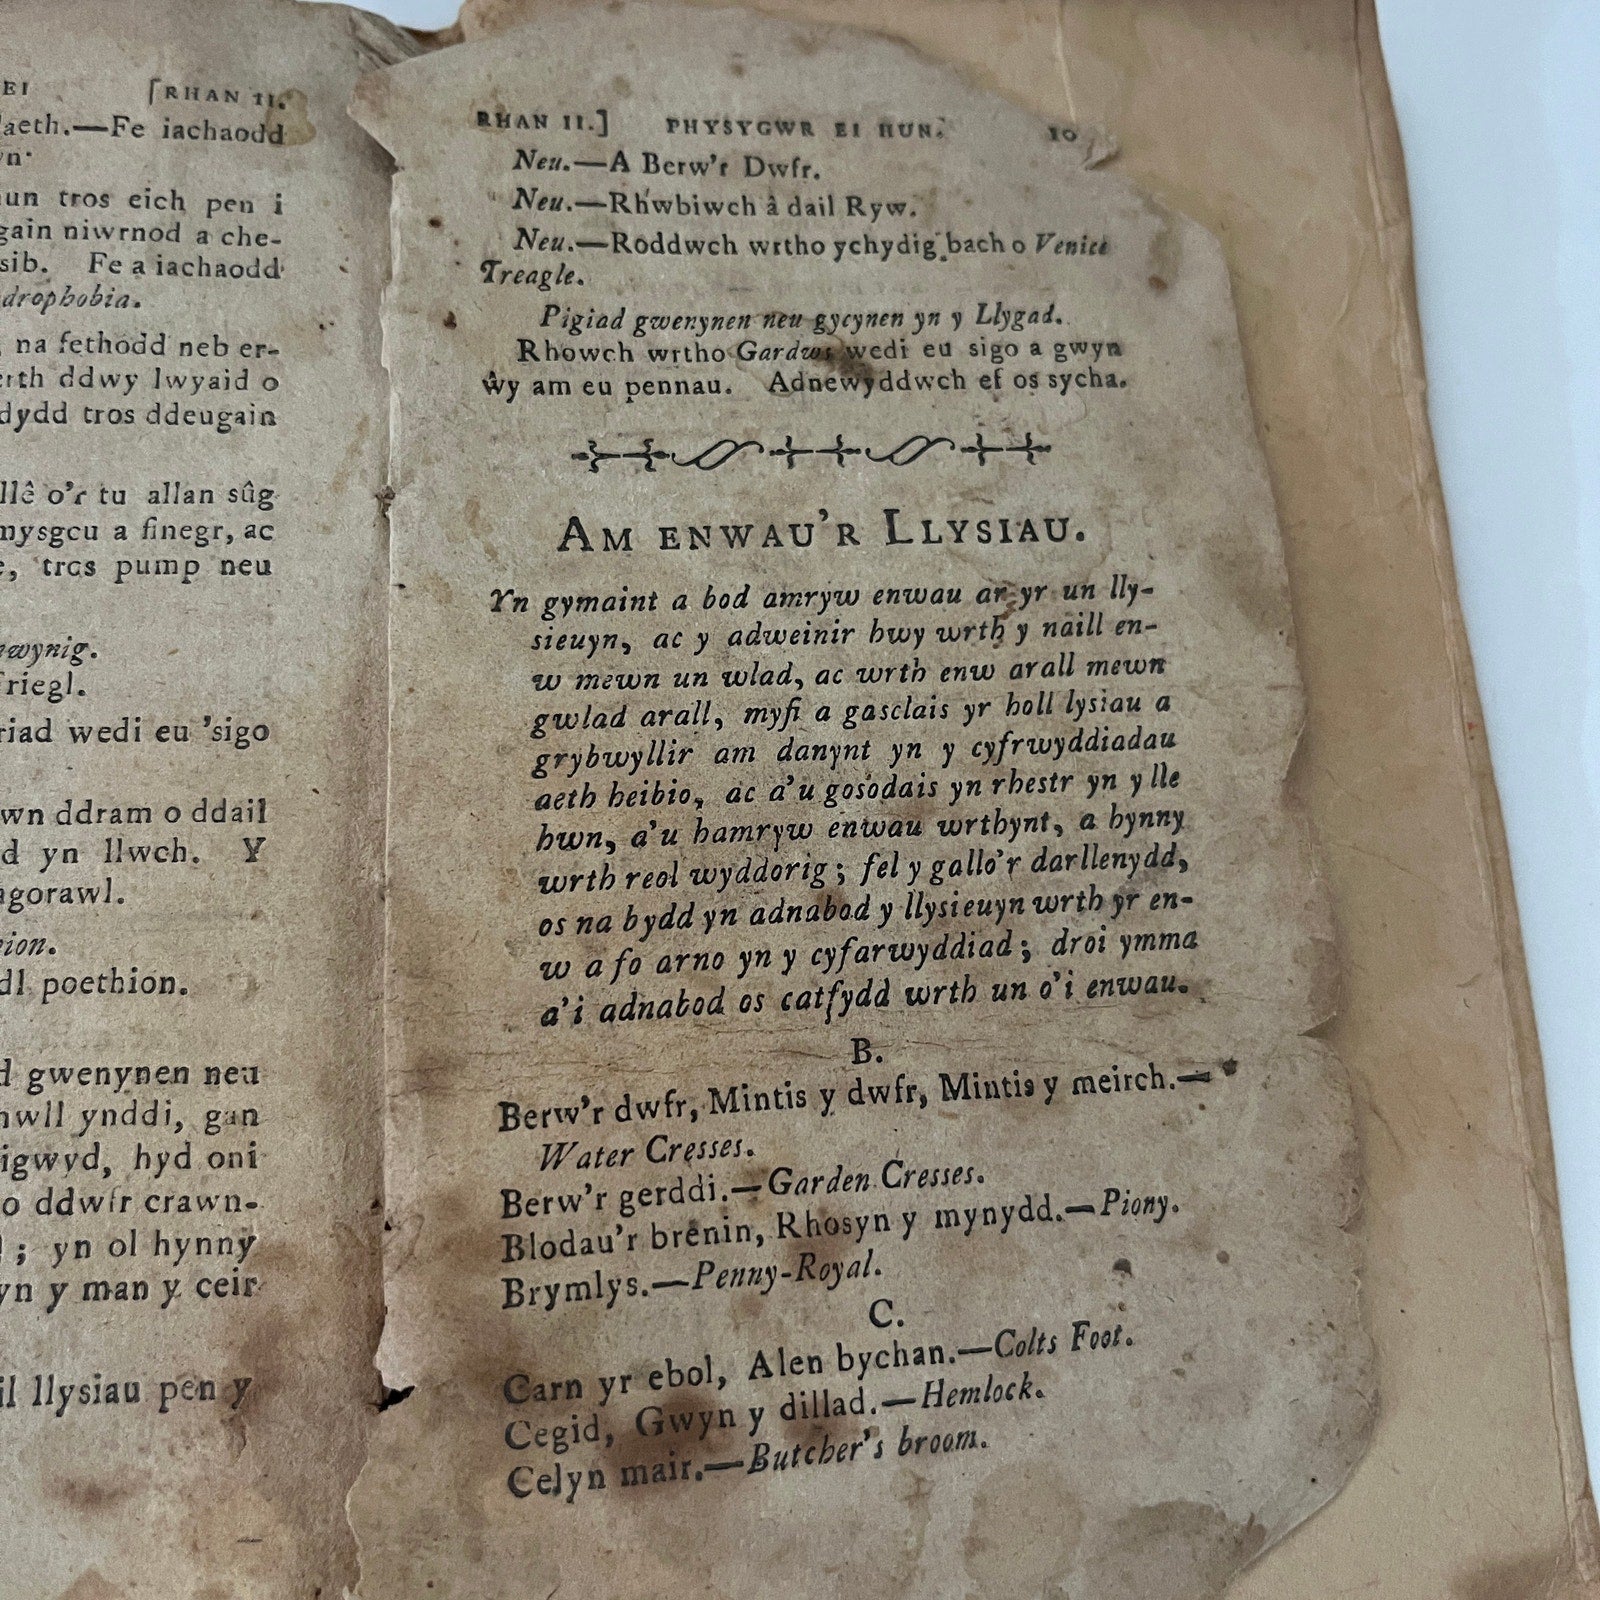 EI [RHAN II.
aeth.—Fe iachaodd
yn.
un tros eich pen i
gain niwrnod a che-
sib. Fe a iachaodd
drophobia.
na fethodd neb er-
erth ddwy lwyaid o
dydd tros ddeugain
llê o'r tu allan sûg
mysgcu a finegr, ac
e, tros pump neu
nwynig.
friegl.
riad wedi eu 'sigo
wn ddram o ddail
d yn llwch. Y
agorawl.
eion.
dl poethion.
d gwenynen neu
nwll ynddi, gan
igwyd, hyd oni
o ddwfr crawn-
; yn ol hynny
yn y man y ceir
il llysiau pen y
RHAN II.] PHYSYGWR EI HUN. 10
Neu.—A Berw'r Dwfr.
Neu.—Rhwbiwch â dail Ryw.
Neu.—Roddwch wrtho ychydig bach o Venice
Treagle.
Pigiad gwenynen neu gycynen yn y Llygad.
Rhowch wrtho Gardws wedi eu sigo a gwyn
ŵy am eu pennau. Adnewyddwch ef os sycha.
AM ENWAU'R LLYSIAU.
Yn gymaint a bod amryw enwau ar yr un lly-
sieuyn, ac y adweinir hwy wrth y naill en-
w mewn un wlad, ac wrth enw arall mewn
gwlad arall, myfi a gasclais yr holl lysiau a
grybwyllir am danynt yn y cyfrwyddiadau
aeth heibio, ac a'u gosodais yn rhestr yn y lle
hwn, a'u hamryw enwau wrthynt, a hynny
wrth reol wyddorig; fel y gallo'r darllenydd,
os na bydd yn adnabod y llysieuyn wrth yr en-
w a fo arno yn y cyfarwyddiad; droi ymma
a'i adnabod os catfydd wrth un o'i enwau.
B.
Berw'r dwfr, Mintis y dwfr, Mintis y meirch.—
Water Cresses.
Berw'r gerddi.—Garden Cresses.
Blodau'r brenin, Rhosyn y mynydd.—Piony.
Brymlys.—Penny-Royal.
C.
Carn yr ebol, Alen bychan.—Colts Foot.
Cegid, Gwyn y dillad.—Hemlock.
Celyn mair.—Butcher's broom.